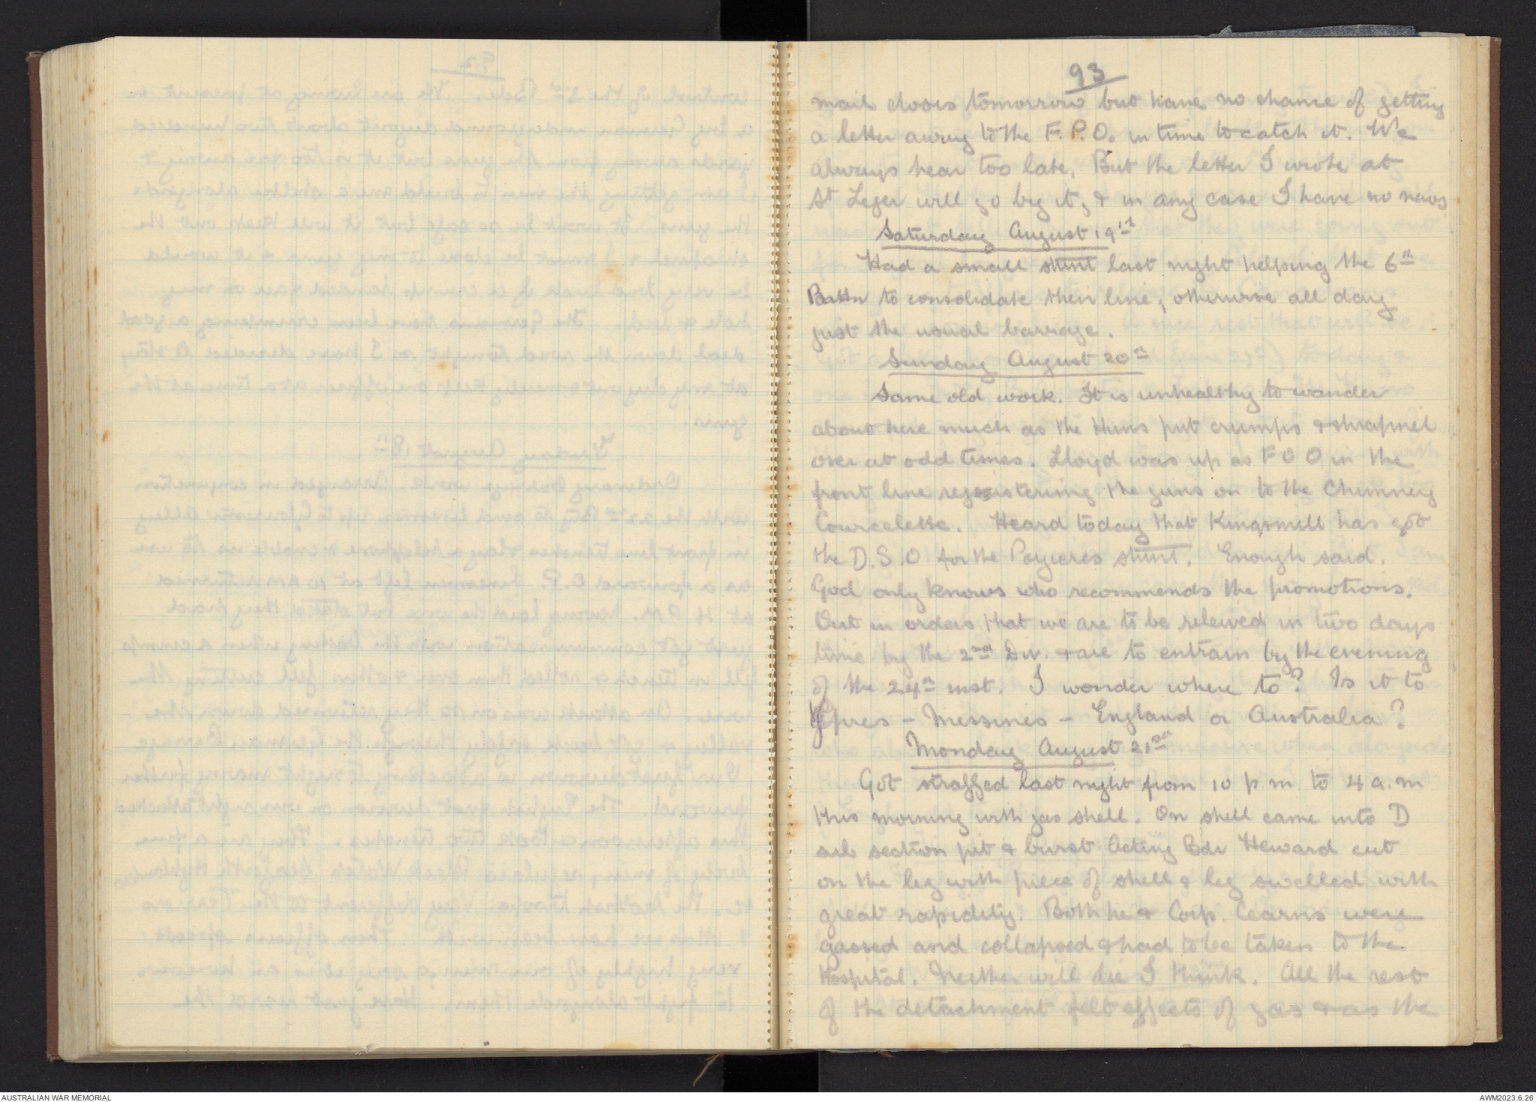 93
mail closes tomorrow but have no chance of getting
a letter away to the F.P.O. in time to catch it. We
always hear too late. But the letter I wrote at
St Leger will go by it, & in any case I have no news
Saturday August 19th
Had a small stunt last night helping the 6th
Battn to consolidate their line, otherwise all day
just the usual barrage.
Sunday August 20th
Same old work. It is unhealthy to wander
about here much as the Huns put crumps & shrapnel
over at odd times. Lloyd was up as F O O in the
front line registering the guns on to the Chimney
Courcelette. Heard today that Kingsmill has got
the D.S.O for the Pozieres stunt. Enough said.
God only knows who recommends the promotions.
Out in orders that we are to be releived in two days
time by the 2nd Div. & are to entrain by the evening
of the 24th inst. I wonder where to? Is it to
Ypres - Messines - England or Australia?
Monday August 21st
Got straffed last night from 10 p.m. to 4 a.m
this morning with gas shell. On shell came into D
sub section pit & burst Acting Bdr Heward cut
on the leg with piece of shell & leg swelled with
great rapidity. Both he & Corp. Cearns were
gassed and collapsed & had to be taken to the
Hospital. Neither will die I think. All the rest
of the detachment felt effects of gas & as the
AUSTRALIAN WAR MEMORIAL
AWM2023.6.26